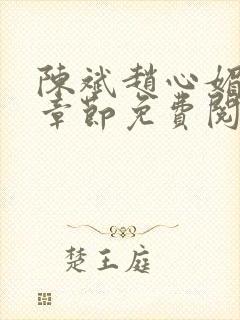 陳斌趙心媚
章節免費閱
楚王庭